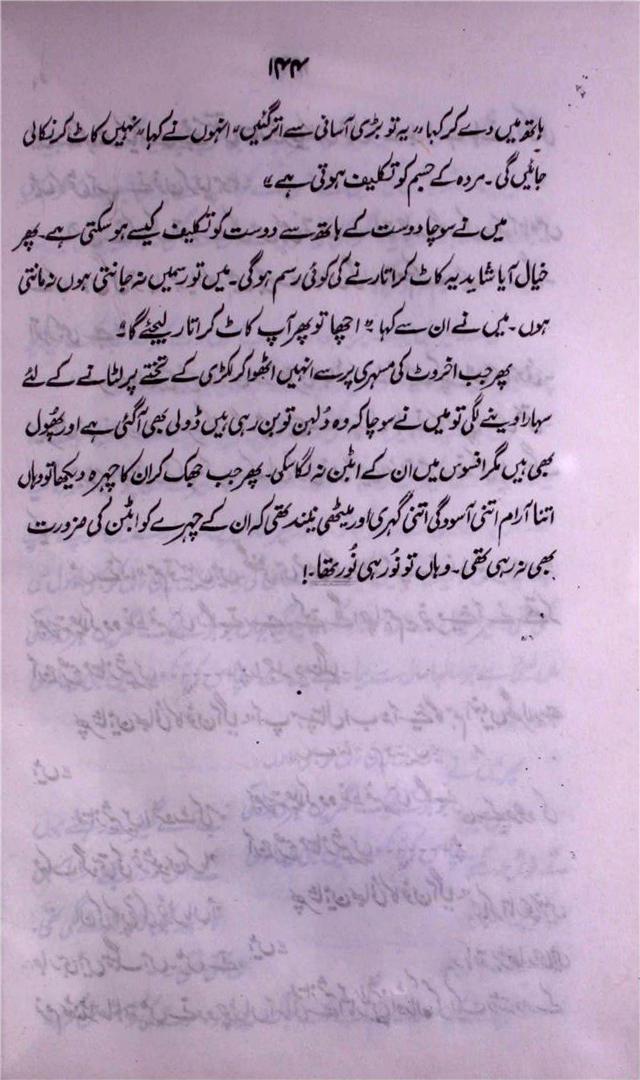 ۱۴۴
ہاتھ میں دے کر کہا "یہ تو بڑی آسانی سے اتر گئیں" انہوں نے کہا "نہیں کاٹ کر نکالی
جائیں گی۔ مردہ کے جسم کو تکلیف ہوتی ہے"
میں نے سوچا دوست کے ہاتھ سے دوست کو تکلیف کیسے ہو سکتی ہے۔ پھر
خیال آیا شاید یہ کاٹ کر اتارنے کی کوئی رسم ہو گی۔ میں تو رسمیں نہ جانتی ہوں نہ مانتی
ہوں۔ میں نے ان سے کہا "اچھا تو پھر آپ کاٹ کر اتار لیجئے گا"
پھر جب اخروٹ کی مسہری پر سے انہیں اٹھوا کر لکڑی کے تختے پر لٹانے کے لئے
سہارا دینے لگی تو میں نے سوچا کہ وہ دُلہن تو بن رہی ہیں ڈولی بھی آ گئی ہے اور پھُول
بھی ہیں مگر افسوس میں ان کے ابٹن نہ لگا سکی۔ پھر جب جھک کر ان کا چہرہ دیکھا تو وہاں
اتنا آرام اتنی آسودگی اتنی گہری اور میٹھی نیند تھی کہ ان کے چہرے کو ابٹن کی ضرورت
بھی نہ رہی تھی۔ وہاں تو نُور ہی نُور تھا۔!